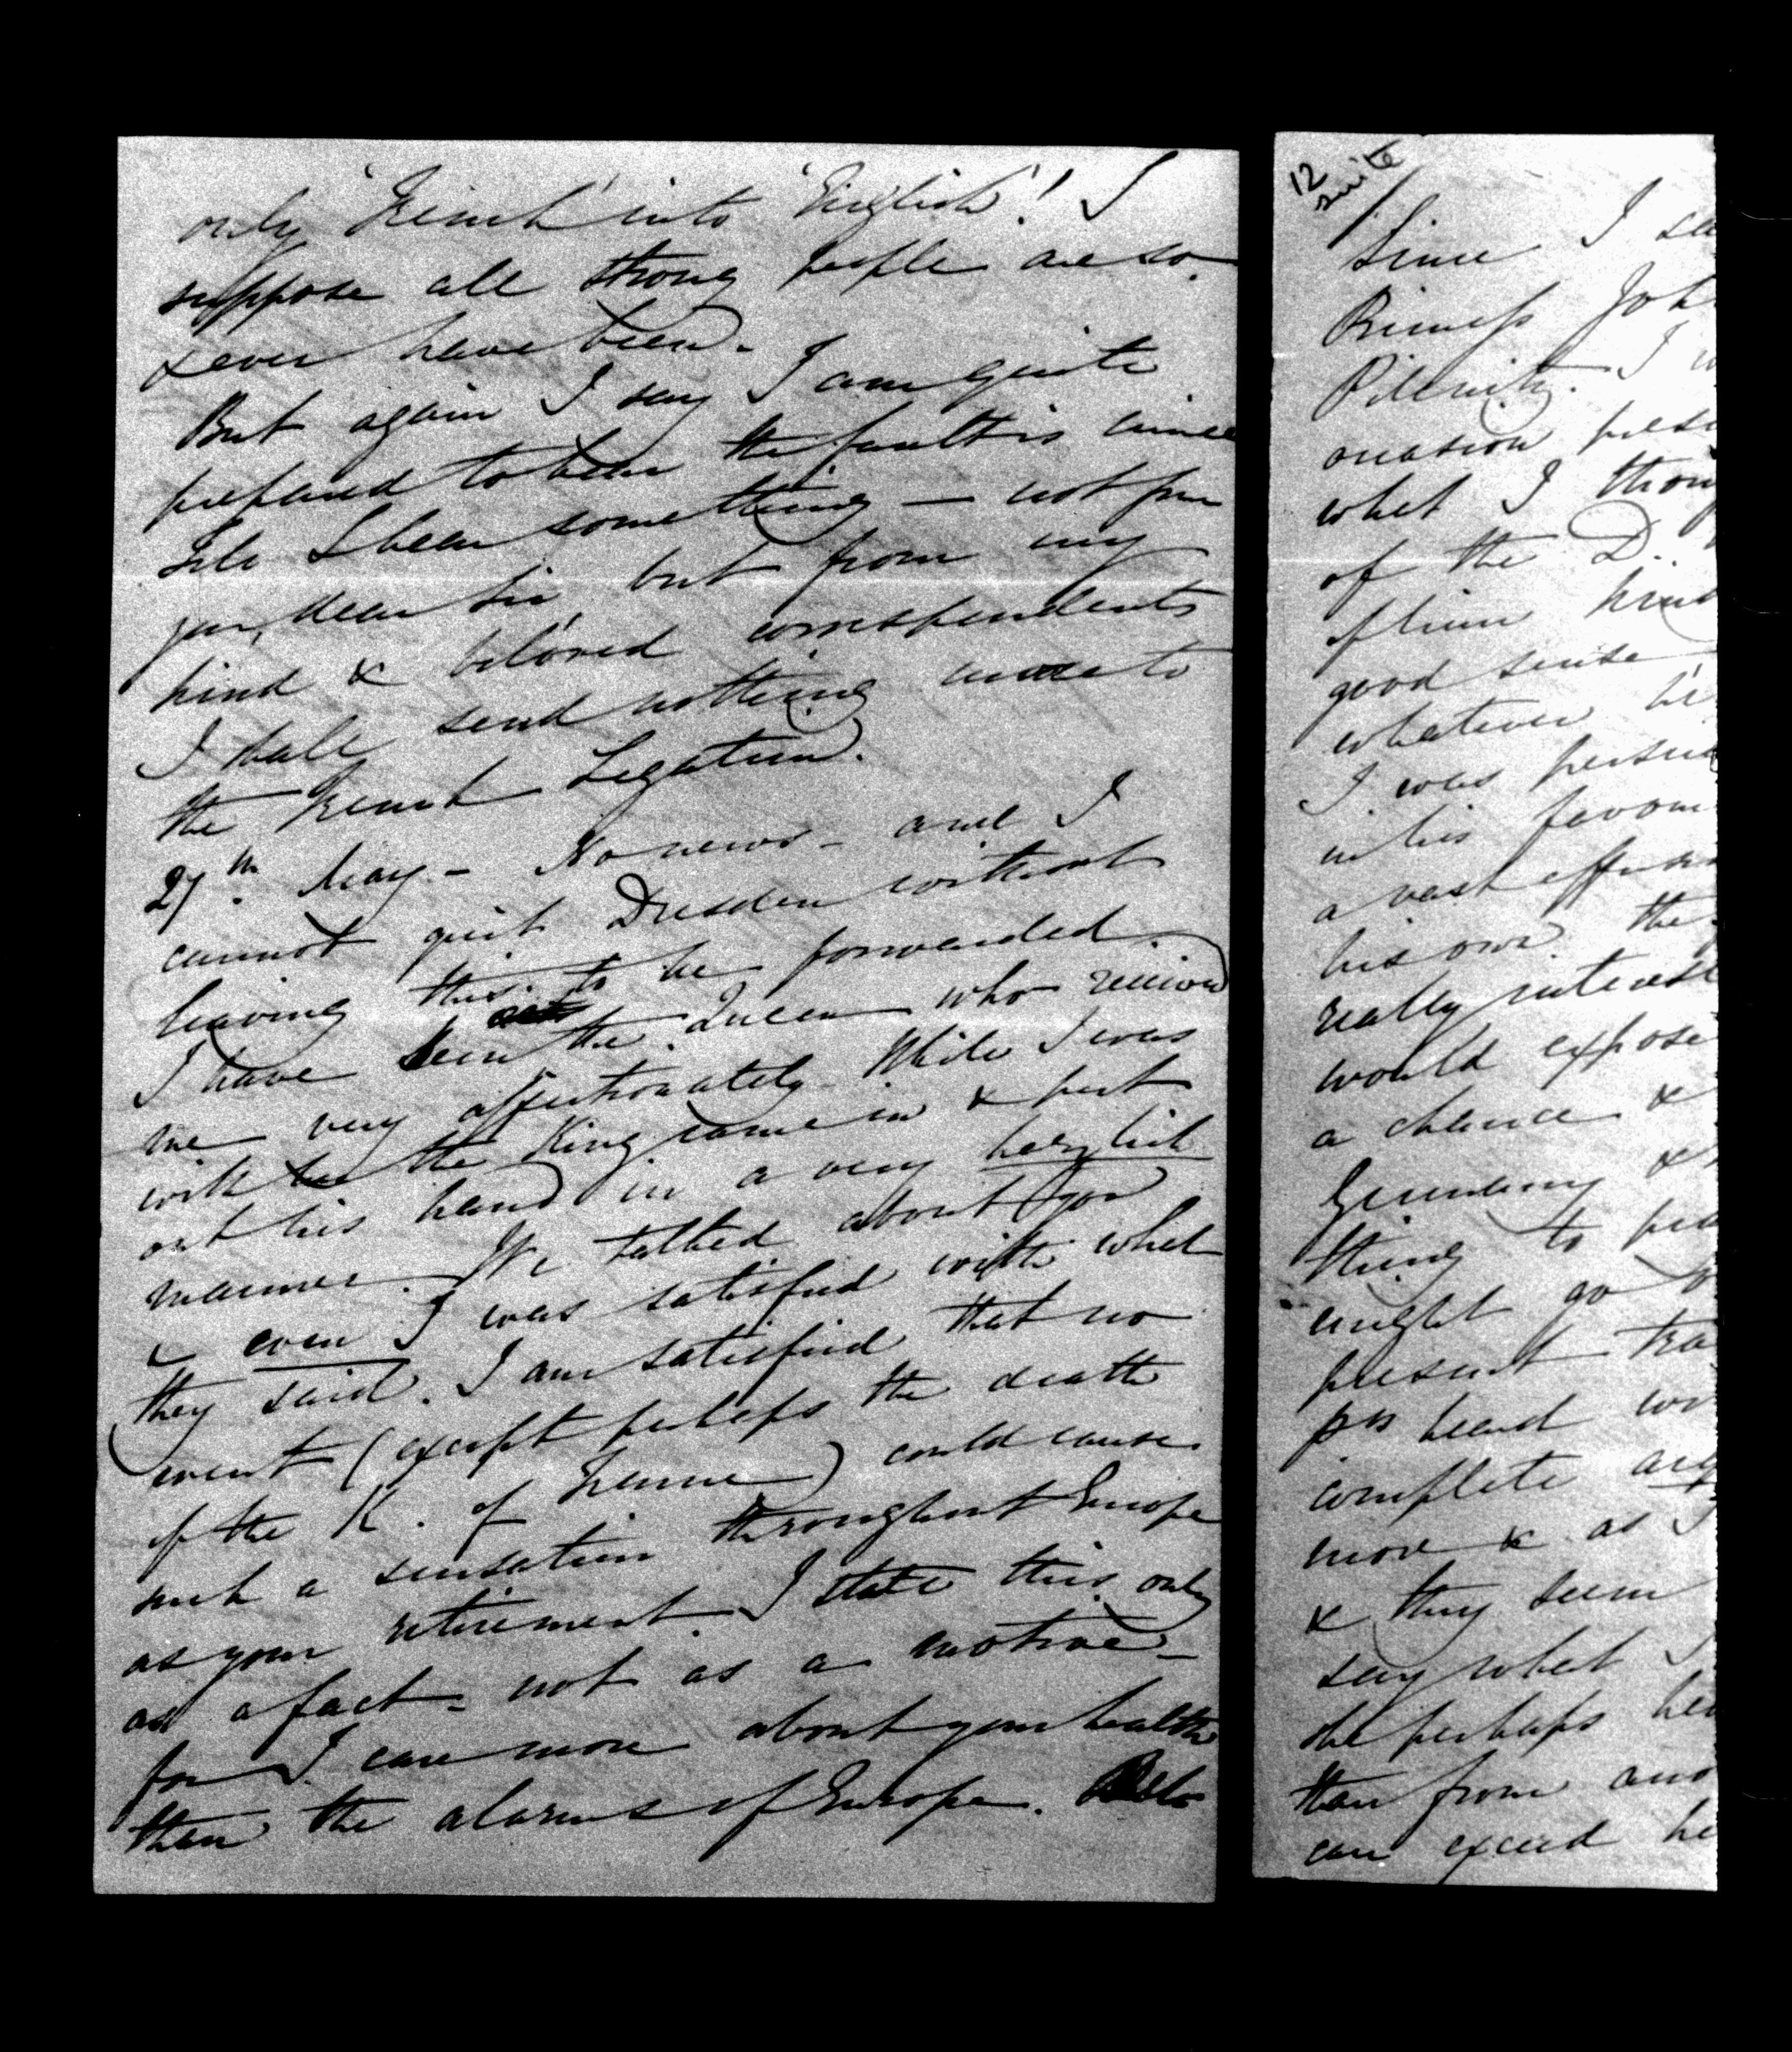 only 'French' into 'English'! I
suppose all strong people are so.
& ever have been.
But again I say I am quite
prepared to hear the fault is mine
Till I hear something — not from
you, dear Sir but from my
kind & beloved correspondents
I shall send nothing more to
the French Legation.
27th. May – No news – and I
cannot quit Dresden without
leaving this to be forwarded.
I have seen the Queen who received
me very affectionately. While I was
with her the King came in & put
out his hand in a very herzlich
manner. We talked about you
& even I was satisfied with what
they said. I am satisfied that no
event (except perhaps the death
of the K. of France) could cause
such a sensation throughout Europe
as your retirement. I state this only
as a fact – not as a motive –
for I care more about your health
than the alarms of Europe.
12
suite
Since I
Princess Joh
Pillnitz. I
occasion
what I
of the D.
of him
good sense
whatever
I was
in his favour
a vast
his own the
really
would expose
a chance &
Germany &
thing to
might go
present
heard
complete
more & as I
& they seem
say what
she perhaps
than from
can exceed